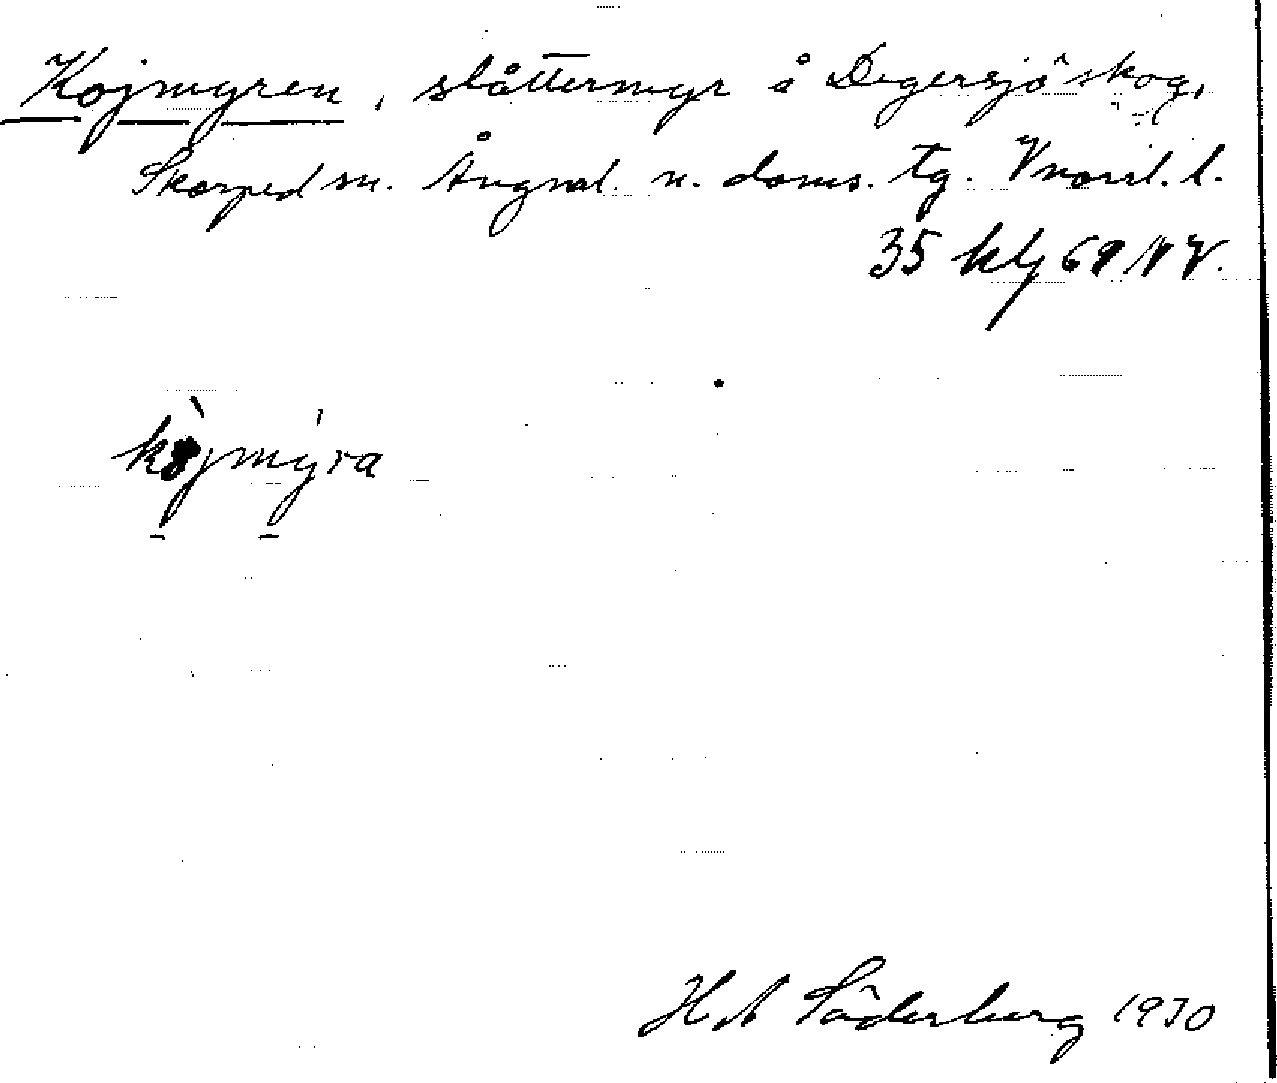 Kojmyren, slåttermyr å Degersjö skog,
Skorped sn. Ångml. n. doms. tg. Vnorrl. l.
35 klg 69 NV.
kojmyra
H A Söderberg 1930